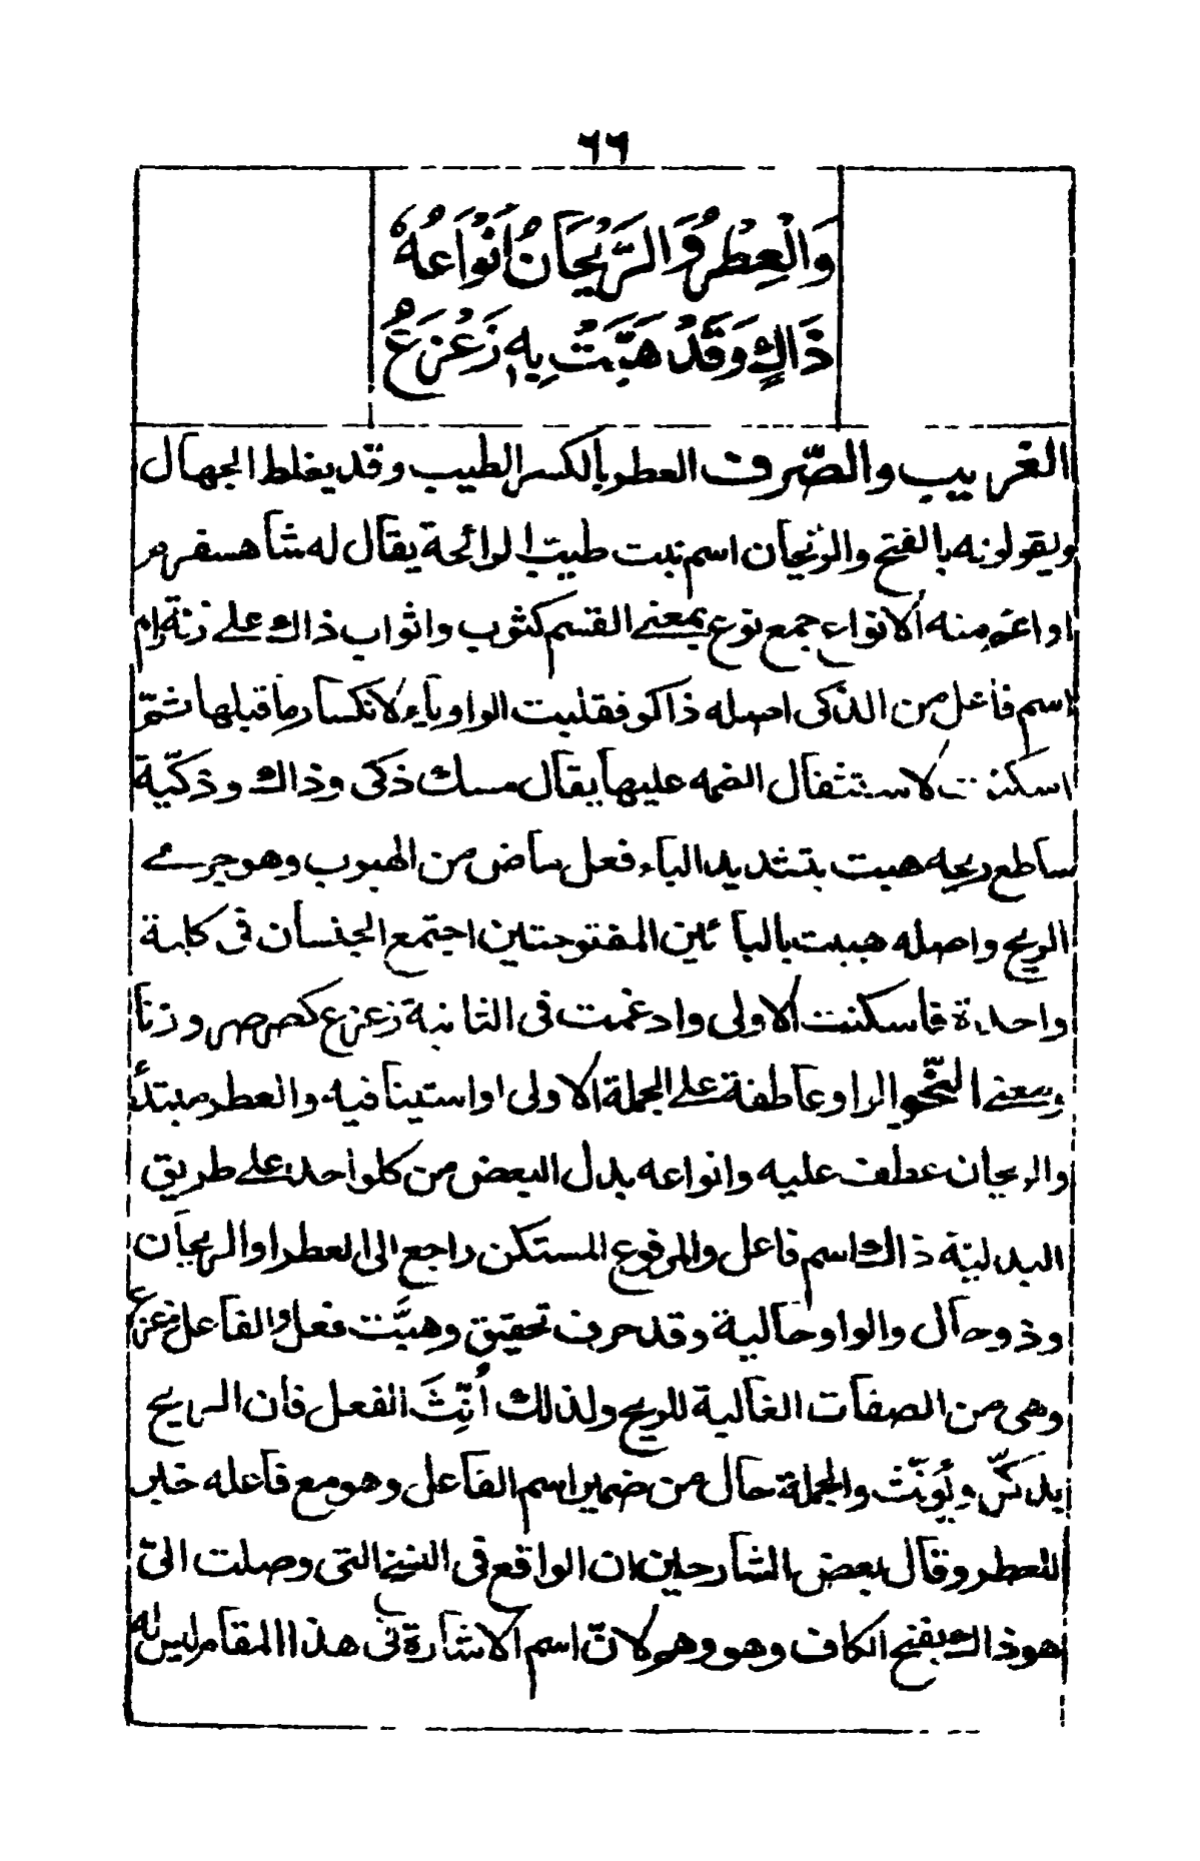 ٦٦
وَالْعِطْرُ وَالرَّيْحَانُ أَنْوَاعُهُ
ذَاكٍ وَقَدْ هَبَّتْ بِهِ زَعْزَعُ
الغريب والصّرف العطر بالكسر الطيب وقد يغلط الجهال
ويقولونه بالفتح والريحان اسم نبت طيب الرائحة يقال له شاهسفرم
او اعم منه الانواع جمع نوع بمعنى القسم كثوب واثواب ذاك على زنة رام
اسم فاعل من الذكى اصله ذاكو فقلبت الواو ياء لانكسار ما قبلها ثمّ
اسكنت لاستثقال الضمه عليها يقال مسك ذكى وذاك وذكيّة
ساطع ريحه هبت بتشديد الباء فعل ماض من الهبوب وهو جرى
الريح واصله هببت بالبائين المفتوحتين اجتمع الجنسان فى كلمة
واحدة فاسكنت الاولى وادغمت فى الثانية زعزع كصرصر وزنا
ومعنى النّحو الواو عاطفة على الجملة الاولى او استينافيه والعطر مبتدأ
والريحان عطف عليه وانواعه بدل البعض من كلواحد على طريق
البدلية ذاك اسم فاعل والمرفوع المستكن راجع الى العطر او الريحان
وذوحال والواو حالية وقد حرف تحقيق وهبَّت فعل والفاعل زعزع
وهى من الصفات الغالبة للريح ولذلك أُنِّثَ الفعل فان الريح
يذكّر ويؤنّث والجملة حال من ضمير اسم الفاعل وهو مع فاعله خبر
للعطر وقال بعض الشارحين ان الواقع فى النسخ التى وصلت الىّ
هو ذاك بفتح الكاف وهو وهم لانّ اسم الاشارة فى هذا المقام ليس له